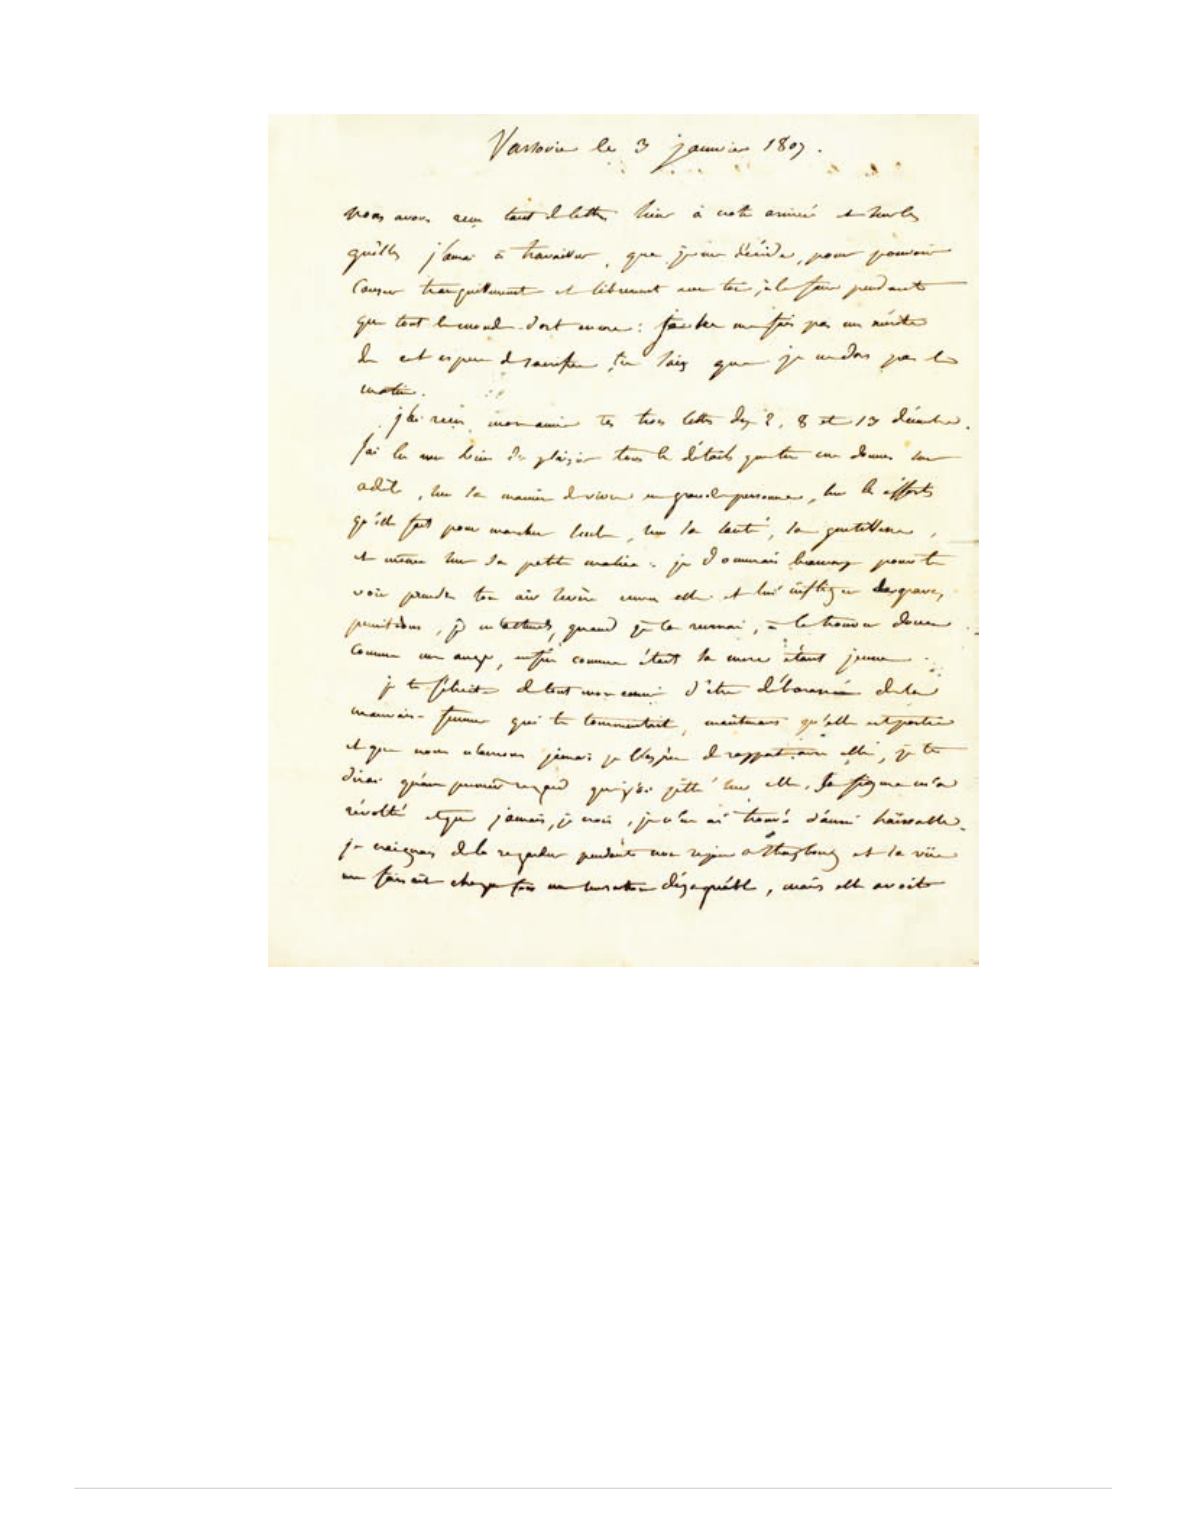 Varsovie le 3 janvier 1807.
nous avons reçu tant de lettres hier à notre arrivée et sur les
quelles j'aurai à travailler, que je me décide, pour pouvoir
causer tranquillement et librement avec toi, à le faire pendant
que tout le monde dort encore: ne fais pas un mérite
de cet espece de sacrifice, tu sais que je ne dors pas le
matin.
j'ai reçu, mon amie tes trois lettres des 2, 8 et 13 décembre.
J'ai lu avec bien du plaisir tous les détails que tu me donnes sur
adèle, sur sa manière de vivre en grande personne, sur les efforts
qu'elle fait pour marcher seule, sur sa santé, sa gentillesse,
et même sur sa petite malice: je donnerais beaucoup pour te
voir prendre ton air sevère envers elle et lui infliger des graves
penitences, je m'attends, quand je la reverrai, à la trouver douce
comme un ange, enfin comme était sa mere étant jeune.
je te félicite de tout mon coeur d'être débarassée de la
mauvaise femme qui te tourmentait, maintenant qu'elle est partie
et que nous n'aurons jamais je l'espère de rapport avec elle, je te
dirai qu'au premier regard que j'ai jetté sur elle, sa figure m'a
révolté et que jamais, je crois, je n'en ai trouvé d'aussi haïssable.
je craignais de la regarder pendant mon sejour a Strasbourg et sa vüe
me faisait chaque fois une sensation désagréable, mais elle avoit